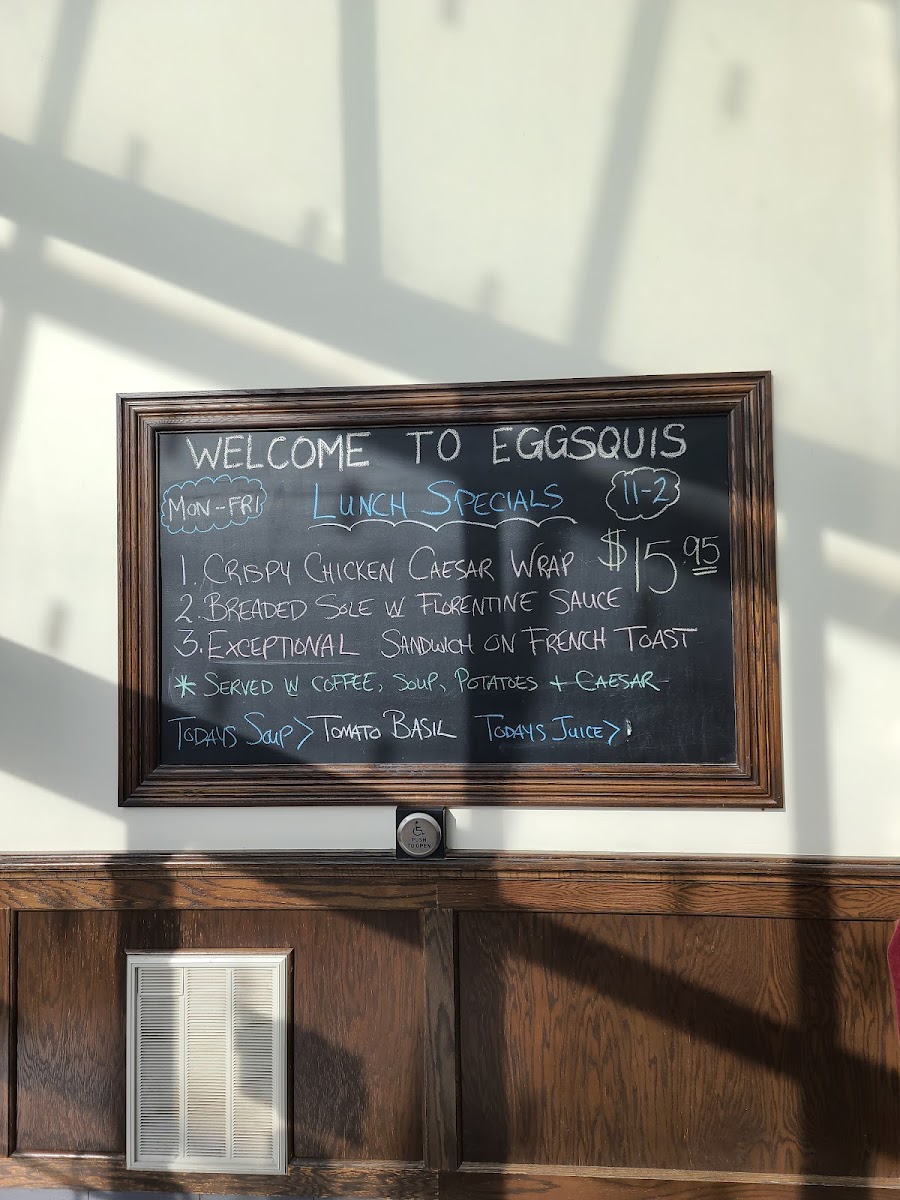 WELCOME TO EGGSQUIS
MON-FRI LUNCH SPECIALS 11-2
1. CRISPY CHICKEN CAESAR WRAP $15.95
2. BREADED SOLE W FLORENTINE SAUCE
3. EXCEPTIONAL SANDWICH ON FRENCH TOAST
* SERVED W COFFEE, SOUP, POTATOES + CAESAR
TODAYS SOUP> TOMATO BASIL TODAYS JUICE>
PUSH
TO OPEN